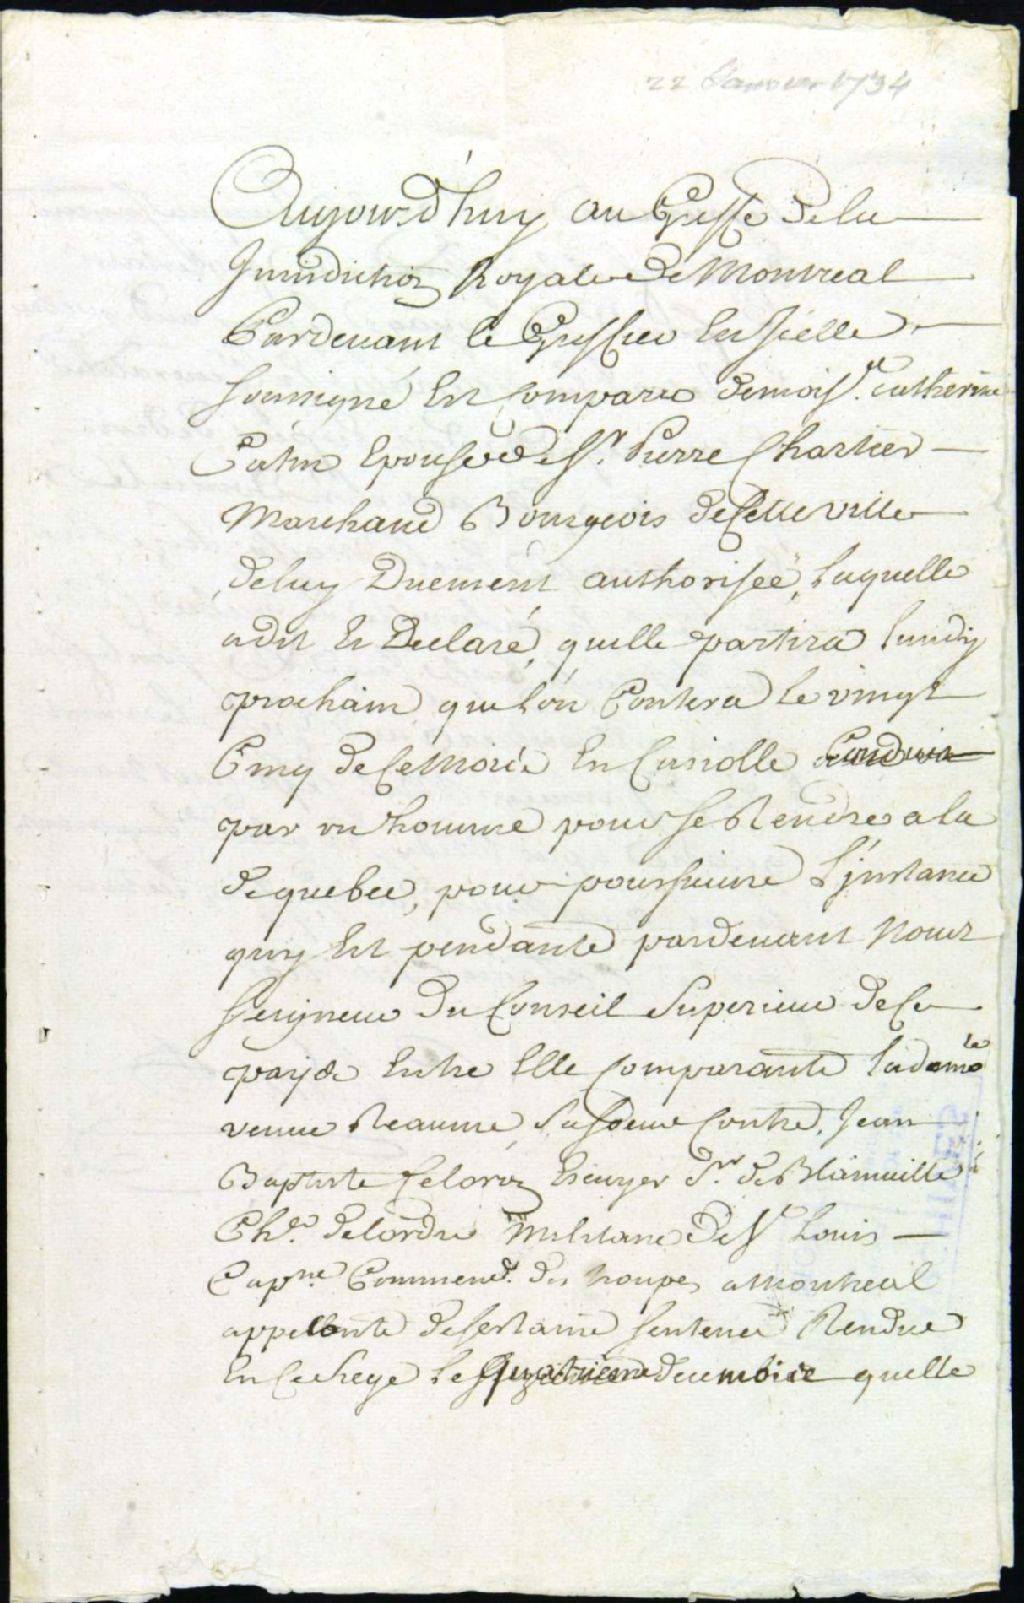 22 Janvier 1734
Aujourd'huy au Greffe De la
Jurisdiction Royale De Montreal
Pardevant le Greffier En Jcelle
Soussigné Est Comparü demoislle. Catherine
Catin Epouse de Sr. Pierre Chartier
Marchand Bourgeois de Cette ville
de luy Duement authorisée, laquelle
a dit Et Declaré, quelle partira lundy
prochain que lón Contera le vingt
Cinq de Ce mois En Cariolle Conduitte
par un homme pour se Rendre a la
de quebec, pour poursuivre L'jnstance
quy Est pendante pardevant Nous
Seigneur Du Conseil Superieur de Ce
pays Entre Elle Comparante la demlle
veuve Reaume, Sa Soeur Contre, Jean
Baptiste Celoron Escuyer Sr. de Blainuille
Chr. de lordre Militaire De St Louis
Capne. Commend. des troupes a Montreal
appellante de Certaine Sentence Rendue
En Ce Siege le quatrieme decembre quelle